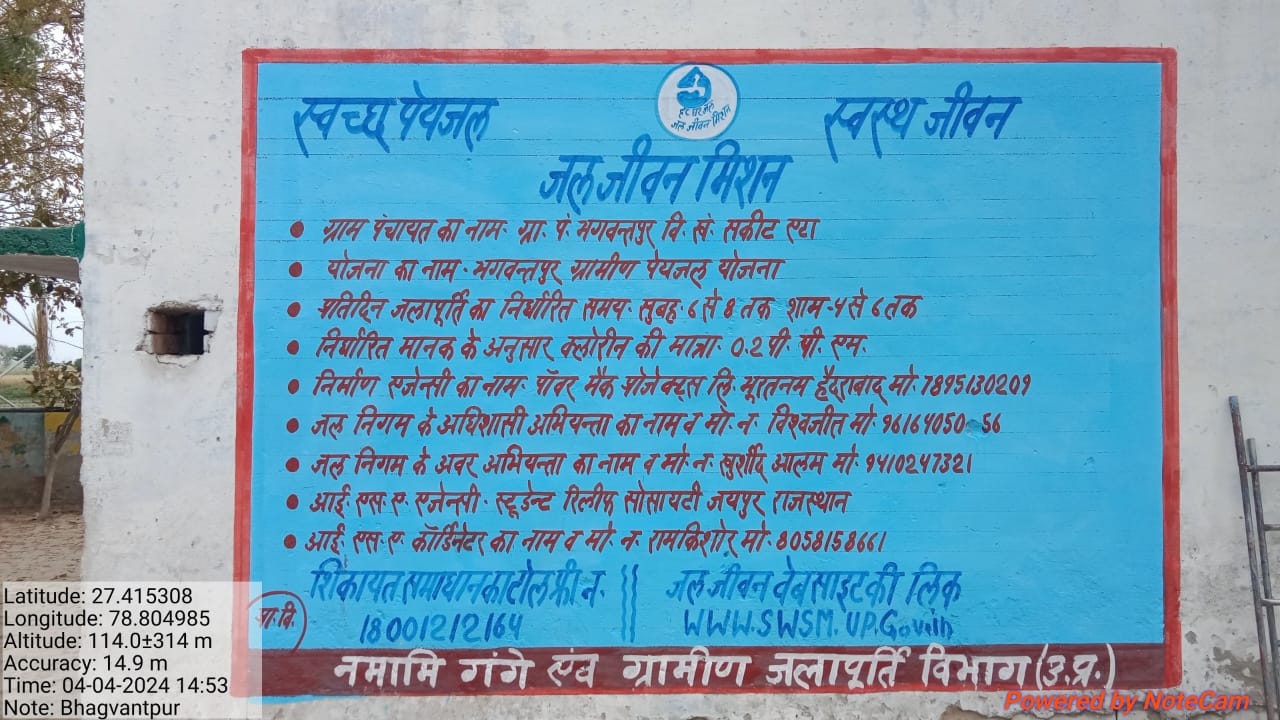 स्वच्छ पेयजल
हर घर जल
जल जीवन मिशन
स्वस्थ जीवन
जल जीवन मिशन
• ग्राम पंचायत का नाम- ग्रा. पं. भगवन्तपुर वि. खं. सकीट एटा
• योजना का नाम - भगवन्तपुर ग्रामीण पेयजल योजना
• प्रतिदिन जलापूर्ति का निर्धारित समय- सुबह- 6 से 8 तक शाम-4 से 6 तक
• निर्धारित मानक के अनुसार क्लोरीन की मात्रा- 0.2 पी. पी. एम.
• निर्माण एजेन्सी का नाम- पॉवर मैक प्रोजेक्ट्स लि. भूरतनम हैदराबाद मो- 7895130209
• जल निगम के अधिशासी अभियन्ता का नाम व मो. न. विश्वजीत मो- 96164050 56
• जल निगम के अवर अभियन्ता का नाम व मो. न. खुर्शीद आलम मो- 9410247321
• आई. एस. ए. एजेन्सी - स्टूडेन्ट रिलीफ सोसायटी जयपुर राजस्थान
• आई. एस. ए. कॉर्डिनेटर का नाम व मो. न. रामकिशोर मो- 8058158661
शिकायत समाधान का टोल फ्री न.
18001212164
जल जीवन वेबसाइट की लिंक
WWW.SWSM.UP.Gov.in
प्रा. वि.
नमामि गंगे एंव ग्रामीण जलापूर्ति विभाग (उ.प्र.)
Latitude: 27.415308
Longitude: 78.804985
Altitude: 114.0±314 m
Accuracy: 14.9 m
Time: 04-04-2024 14:53
Note: Bhagvantpur
Powered by NoteCam